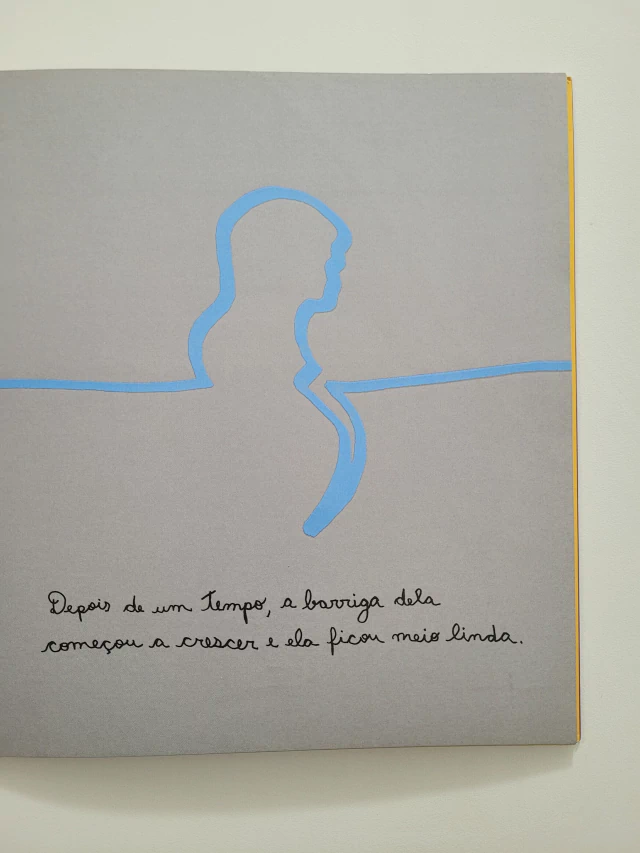 Depois de um tempo, a barriga dela
começou a crescer e ela ficou meio linda.